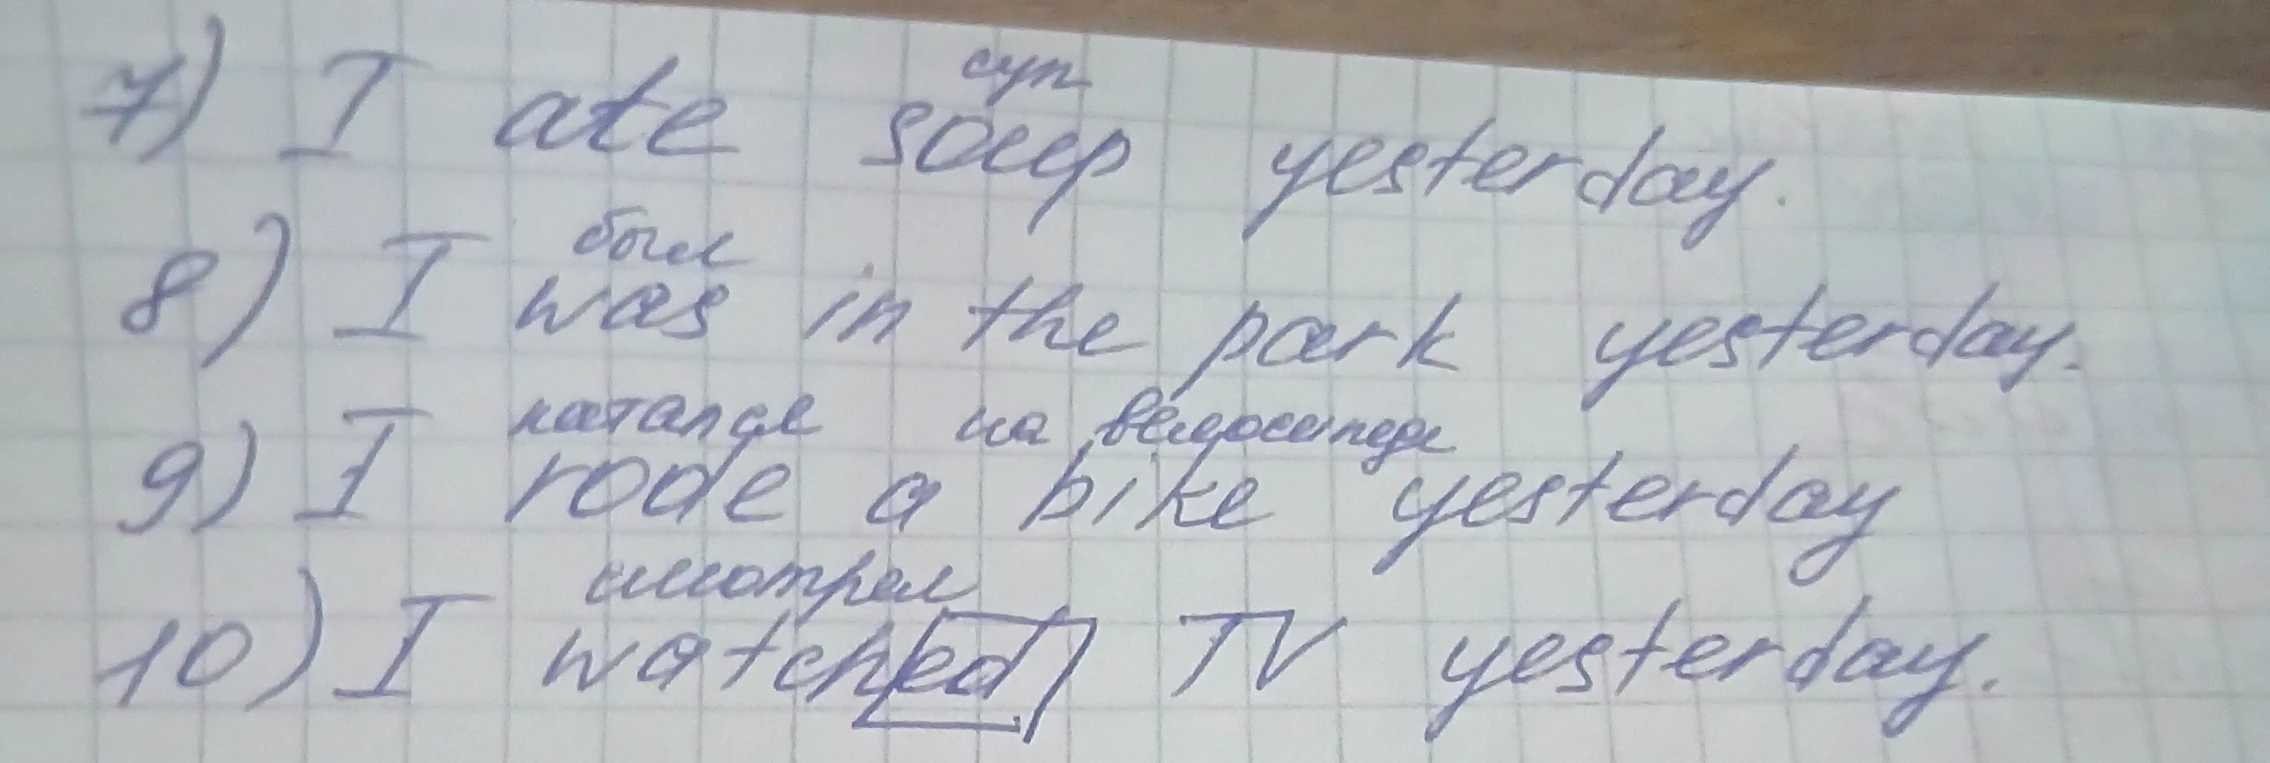 суп
7) I ate soup yesterday.
был
8) I was in the park yesterday.
катался на велосипеде
9) I rode a bike yesterday
смотрел
10) I watched TV yesterday.